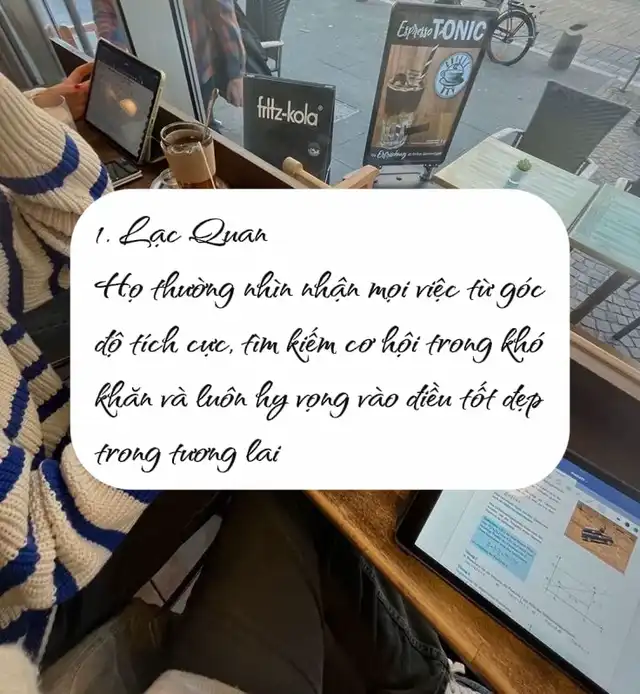 Espresso TONIC
fritz-kola
1. Lạc Quan
Họ thường nhìn nhận mọi việc từ góc
độ tích cực, tìm kiếm cơ hội trong khó
khăn và luôn hy vọng vào điều tốt đẹp
trong tương lai